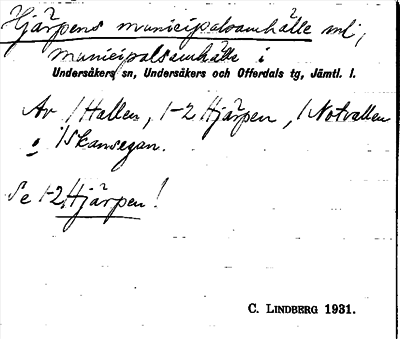 Hjärpens municipalsamhälle ml,
municipalsamhälle i
Undersåkers sn, Undersåkers och Offerdals tg, Jämtl. l.
Av 1 Hallen, 1-2 Hjärpen, 1 Notvallen
o 1 Skansegan.
Se 1-2 Hjärpen!
C. LINDBERG 1931.